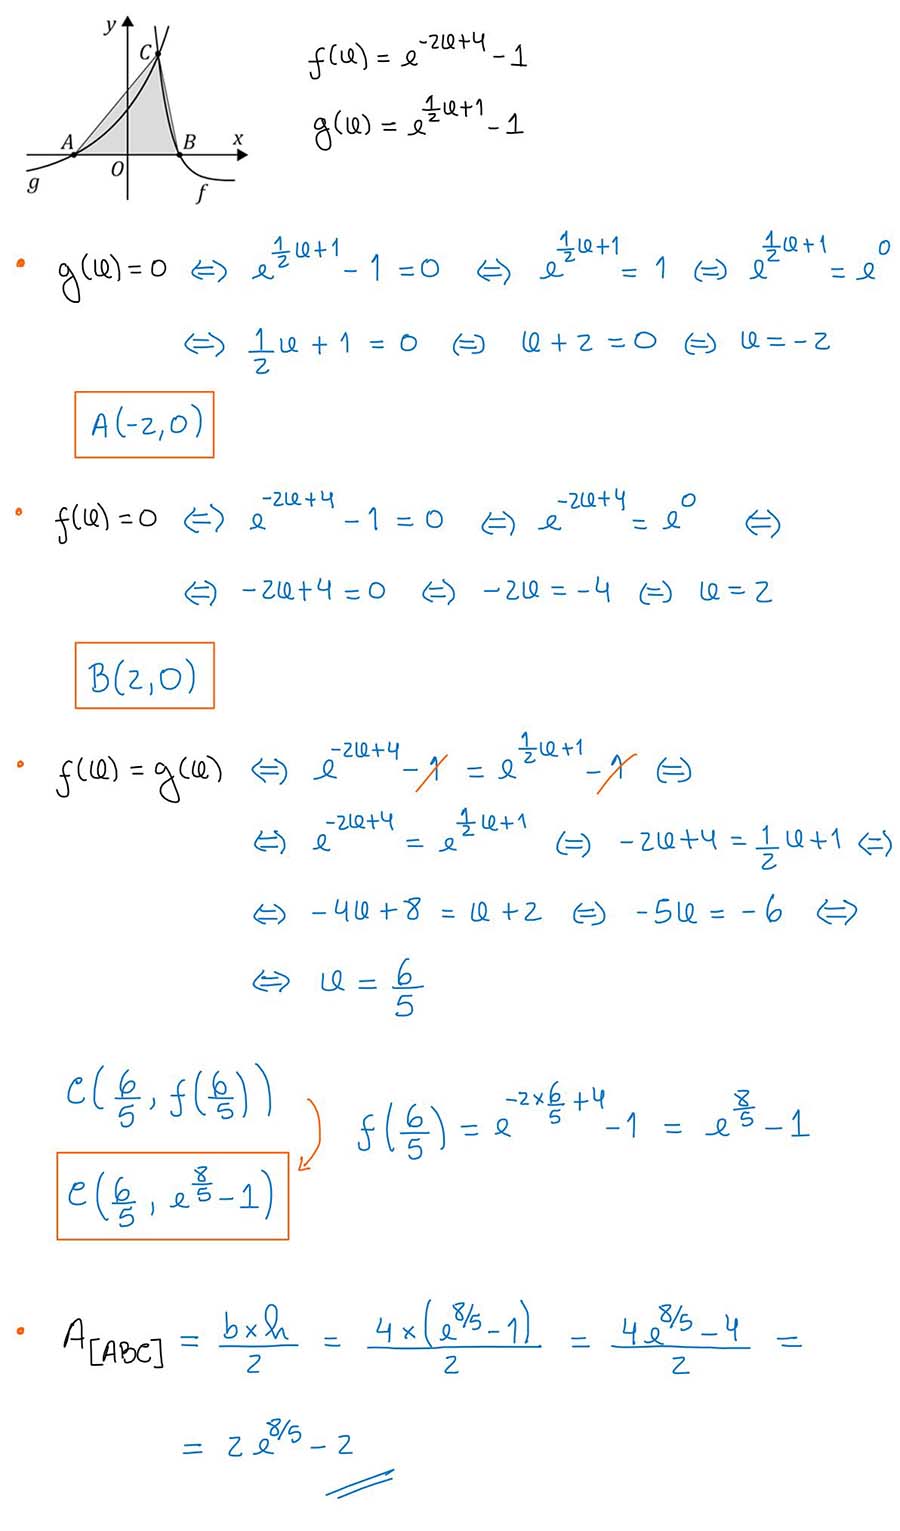 y
C
A B x
O
g f
f(x) = e^{-2x+4} - 1
g(x) = e^{\frac{1}{2}x+1} - 1
• g(x) = 0 ⇔ e^{\frac{1}{2}x+1} - 1 = 0 ⇔ e^{\frac{1}{2}x+1} = 1 ⇔ e^{\frac{1}{2}x+1} = e^0
⇔ \frac{1}{2}x + 1 = 0 ⇔ x + 2 = 0 ⇔ x = -2
A(-2,0)
• f(x) = 0 ⇔ e^{-2x+4} - 1 = 0 ⇔ e^{-2x+4} = e^0 ⇔
⇔ -2x+4 = 0 ⇔ -2x = -4 ⇔ x = 2
B(2,0)
• f(x) = g(x) ⇔ e^{-2x+4} - 1 = e^{\frac{1}{2}x+1} - 1 ⇔
⇔ e^{-2x+4} = e^{\frac{1}{2}x+1} ⇔ -2x+4 = \frac{1}{2}x+1 ⇔
⇔ -4x+8 = x+2 ⇔ -5x = -6 ⇔
⇔ x = \frac{6}{5}
C(\frac{6}{5}, f(\frac{6}{5})) f(\frac{6}{5}) = e^{-2×\frac{6}{5}+4} - 1 = e^{\frac{8}{5}} - 1
C(\frac{6}{5}, e^{\frac{8}{5}} - 1)
• A_{[ABC]} = \frac{b×h}{2} = \frac{4×(e^{8/5} - 1)}{2} = \frac{4e^{8/5} - 4}{2} =
= 2e^{8/5} - 2